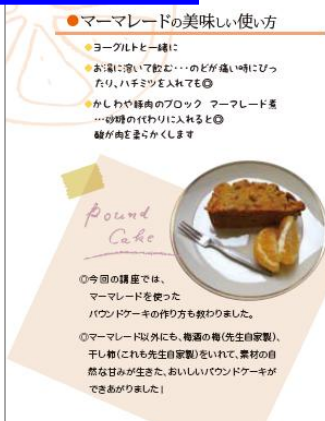 ●マーマレードの美味しい使い方
ヨーグルトと一緒に
お湯に溶いて飲む・・・のどが痛い時にぴっ
たり、ハチミツを入れても◎
かしわや豚肉のブロック マーマレード煮
…砂糖の代わりに入れると◎
酸が肉を柔らかくします
Pound
Cake
◎今回の講座では、
マーマレードを使った
パウンドケーキの作り方も教わりました。
◎マーマレード以外にも、梅酒の梅(先生自家製)、
干し柿(これも先生自家製)をいれて、素材の自
然な甘みが生きた、おいしいパウンドケーキが
できあがりました！